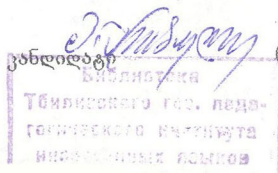 კანდიდატი
Библиотека
Тбилисского гос. педа-
гогического института
иностранных языков